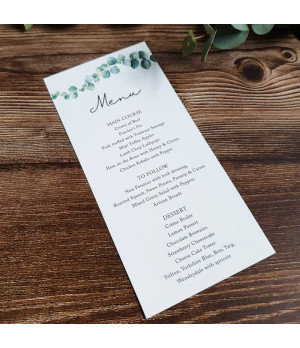 Menu
MAIN COURSE
Crown of Beef
Fisherman's Pie
Pork stuffed with Toulouse Sausage
Mint Toffee Apples
Lamb Chop Lollipops
Ham on the Bone with Honey & Cloves
Chicken Kebabs with Peppers
TO FOLLOW
New Potatoes with herb dressing,
Roasted Squash, Sweet Potato, Parsnip & Carrot
Mixed Green Salad with Peppers
Artisan Breads
DESSERT
Crème Brulee
Lemon Posset
Chocolate Brownies
Strawberry Cheesecake
Cheese Cake Tower
Stilton, Yorkshire Blue, Brie, Yarg,
Wensleydale with apricots